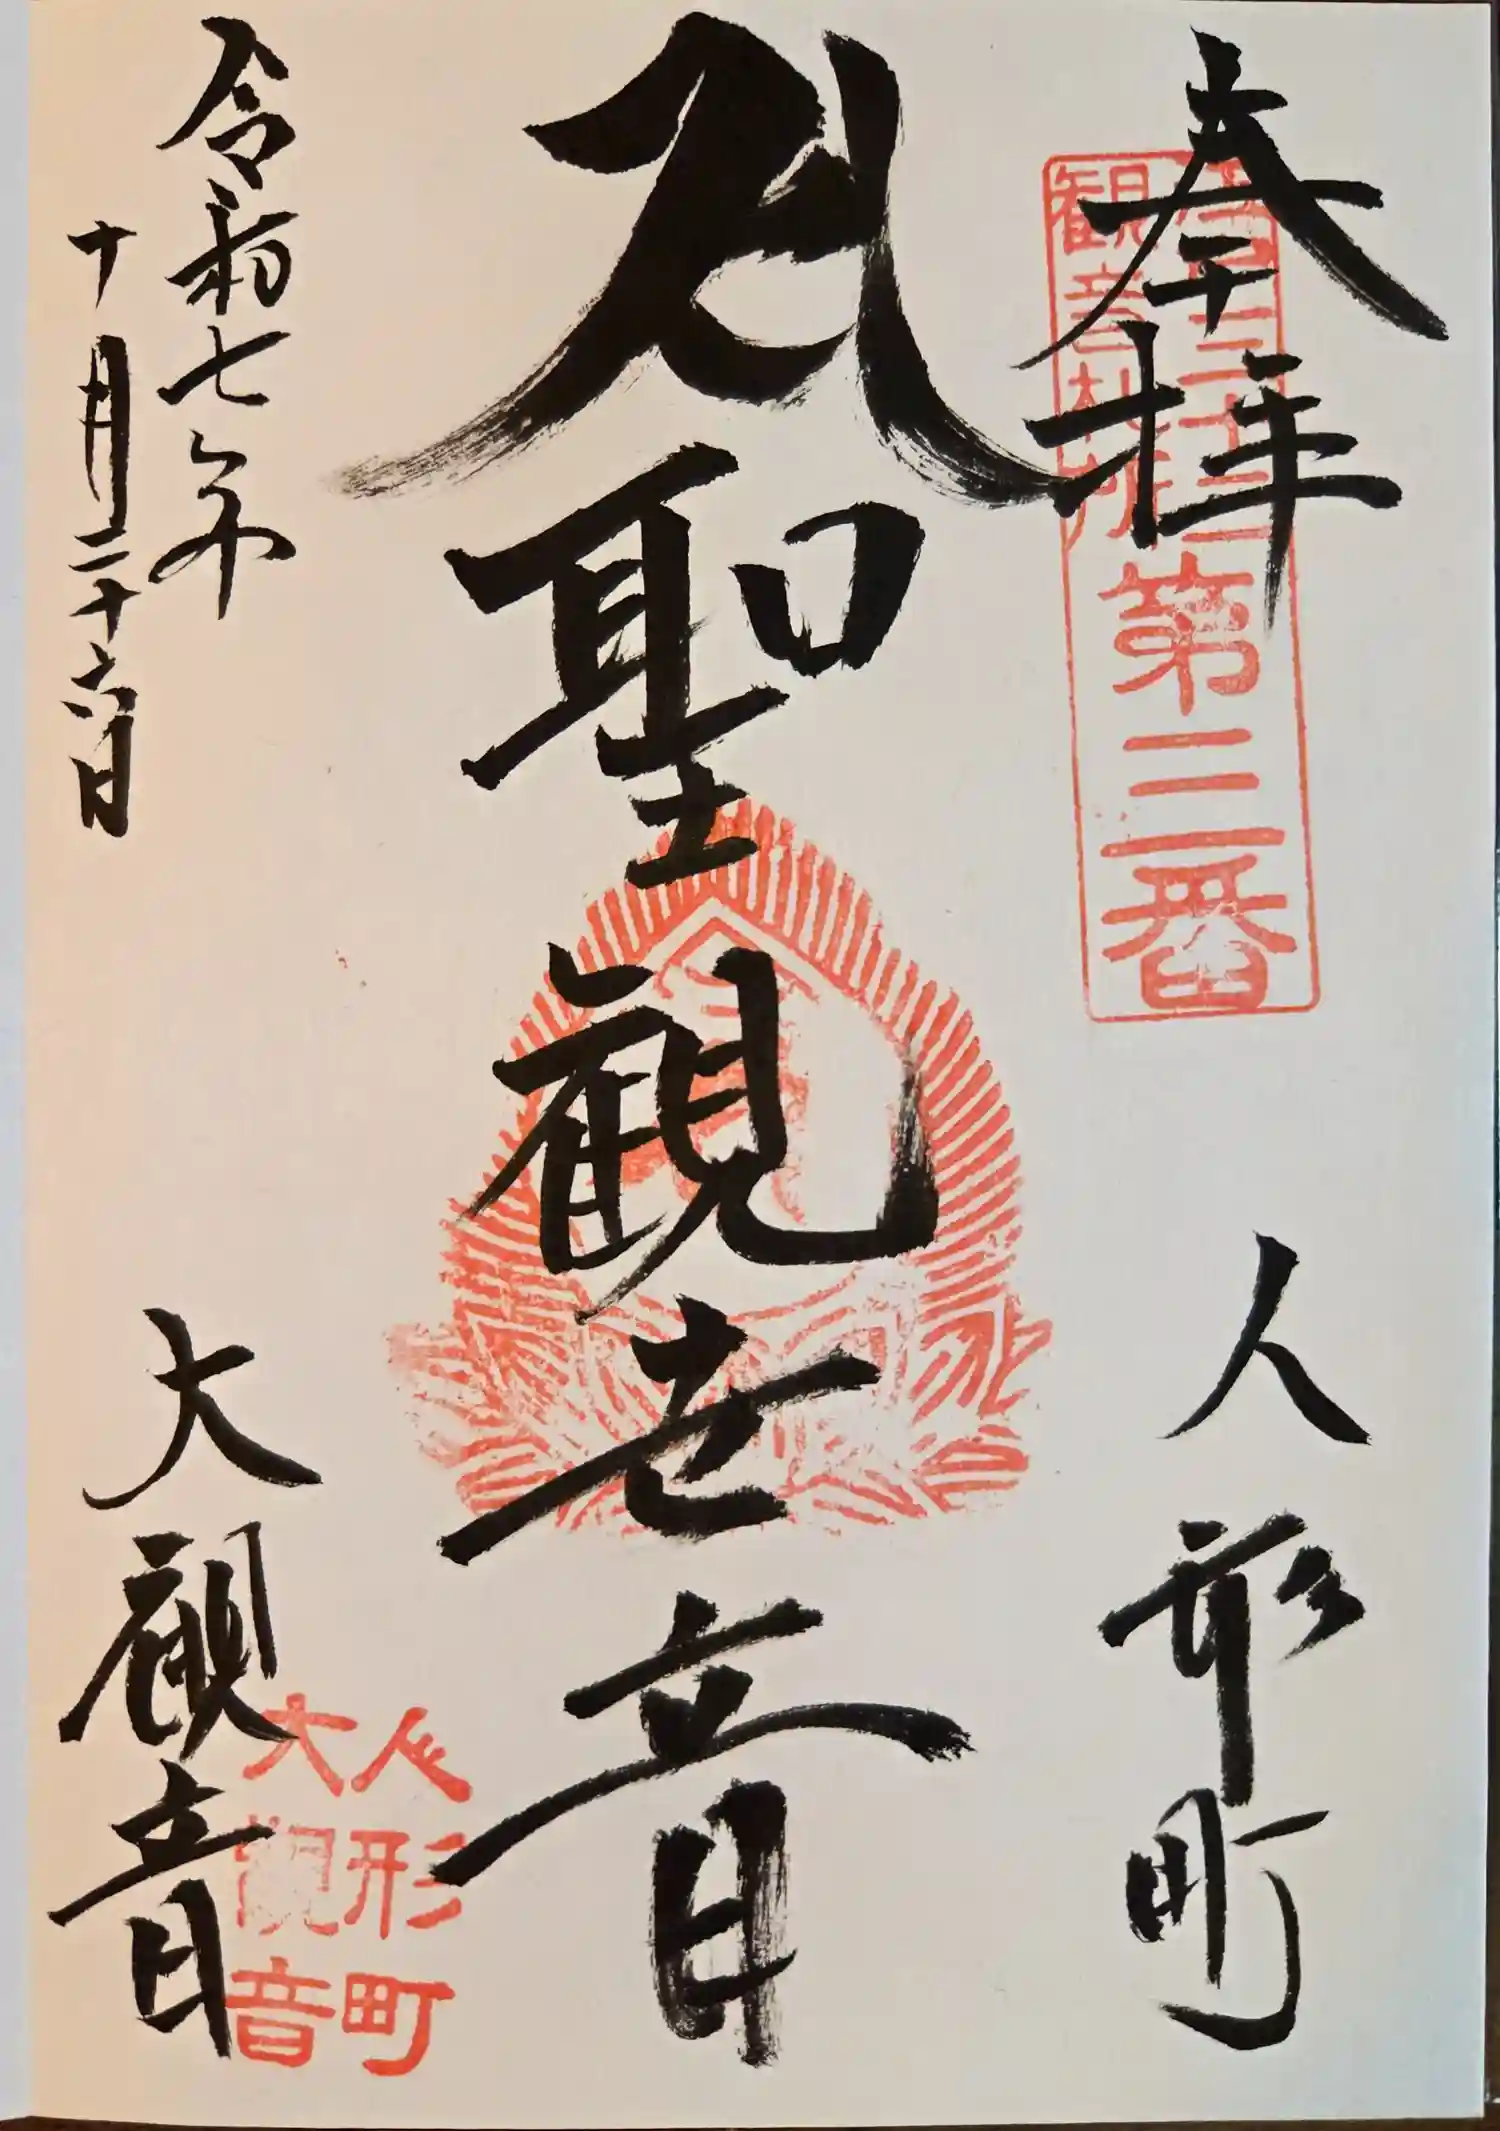 奉拝
江戸三十三
観音札所
第三番
人形町
𑖭
聖観世音
令和七年
十月二十六日
大観音
人形町
大観音